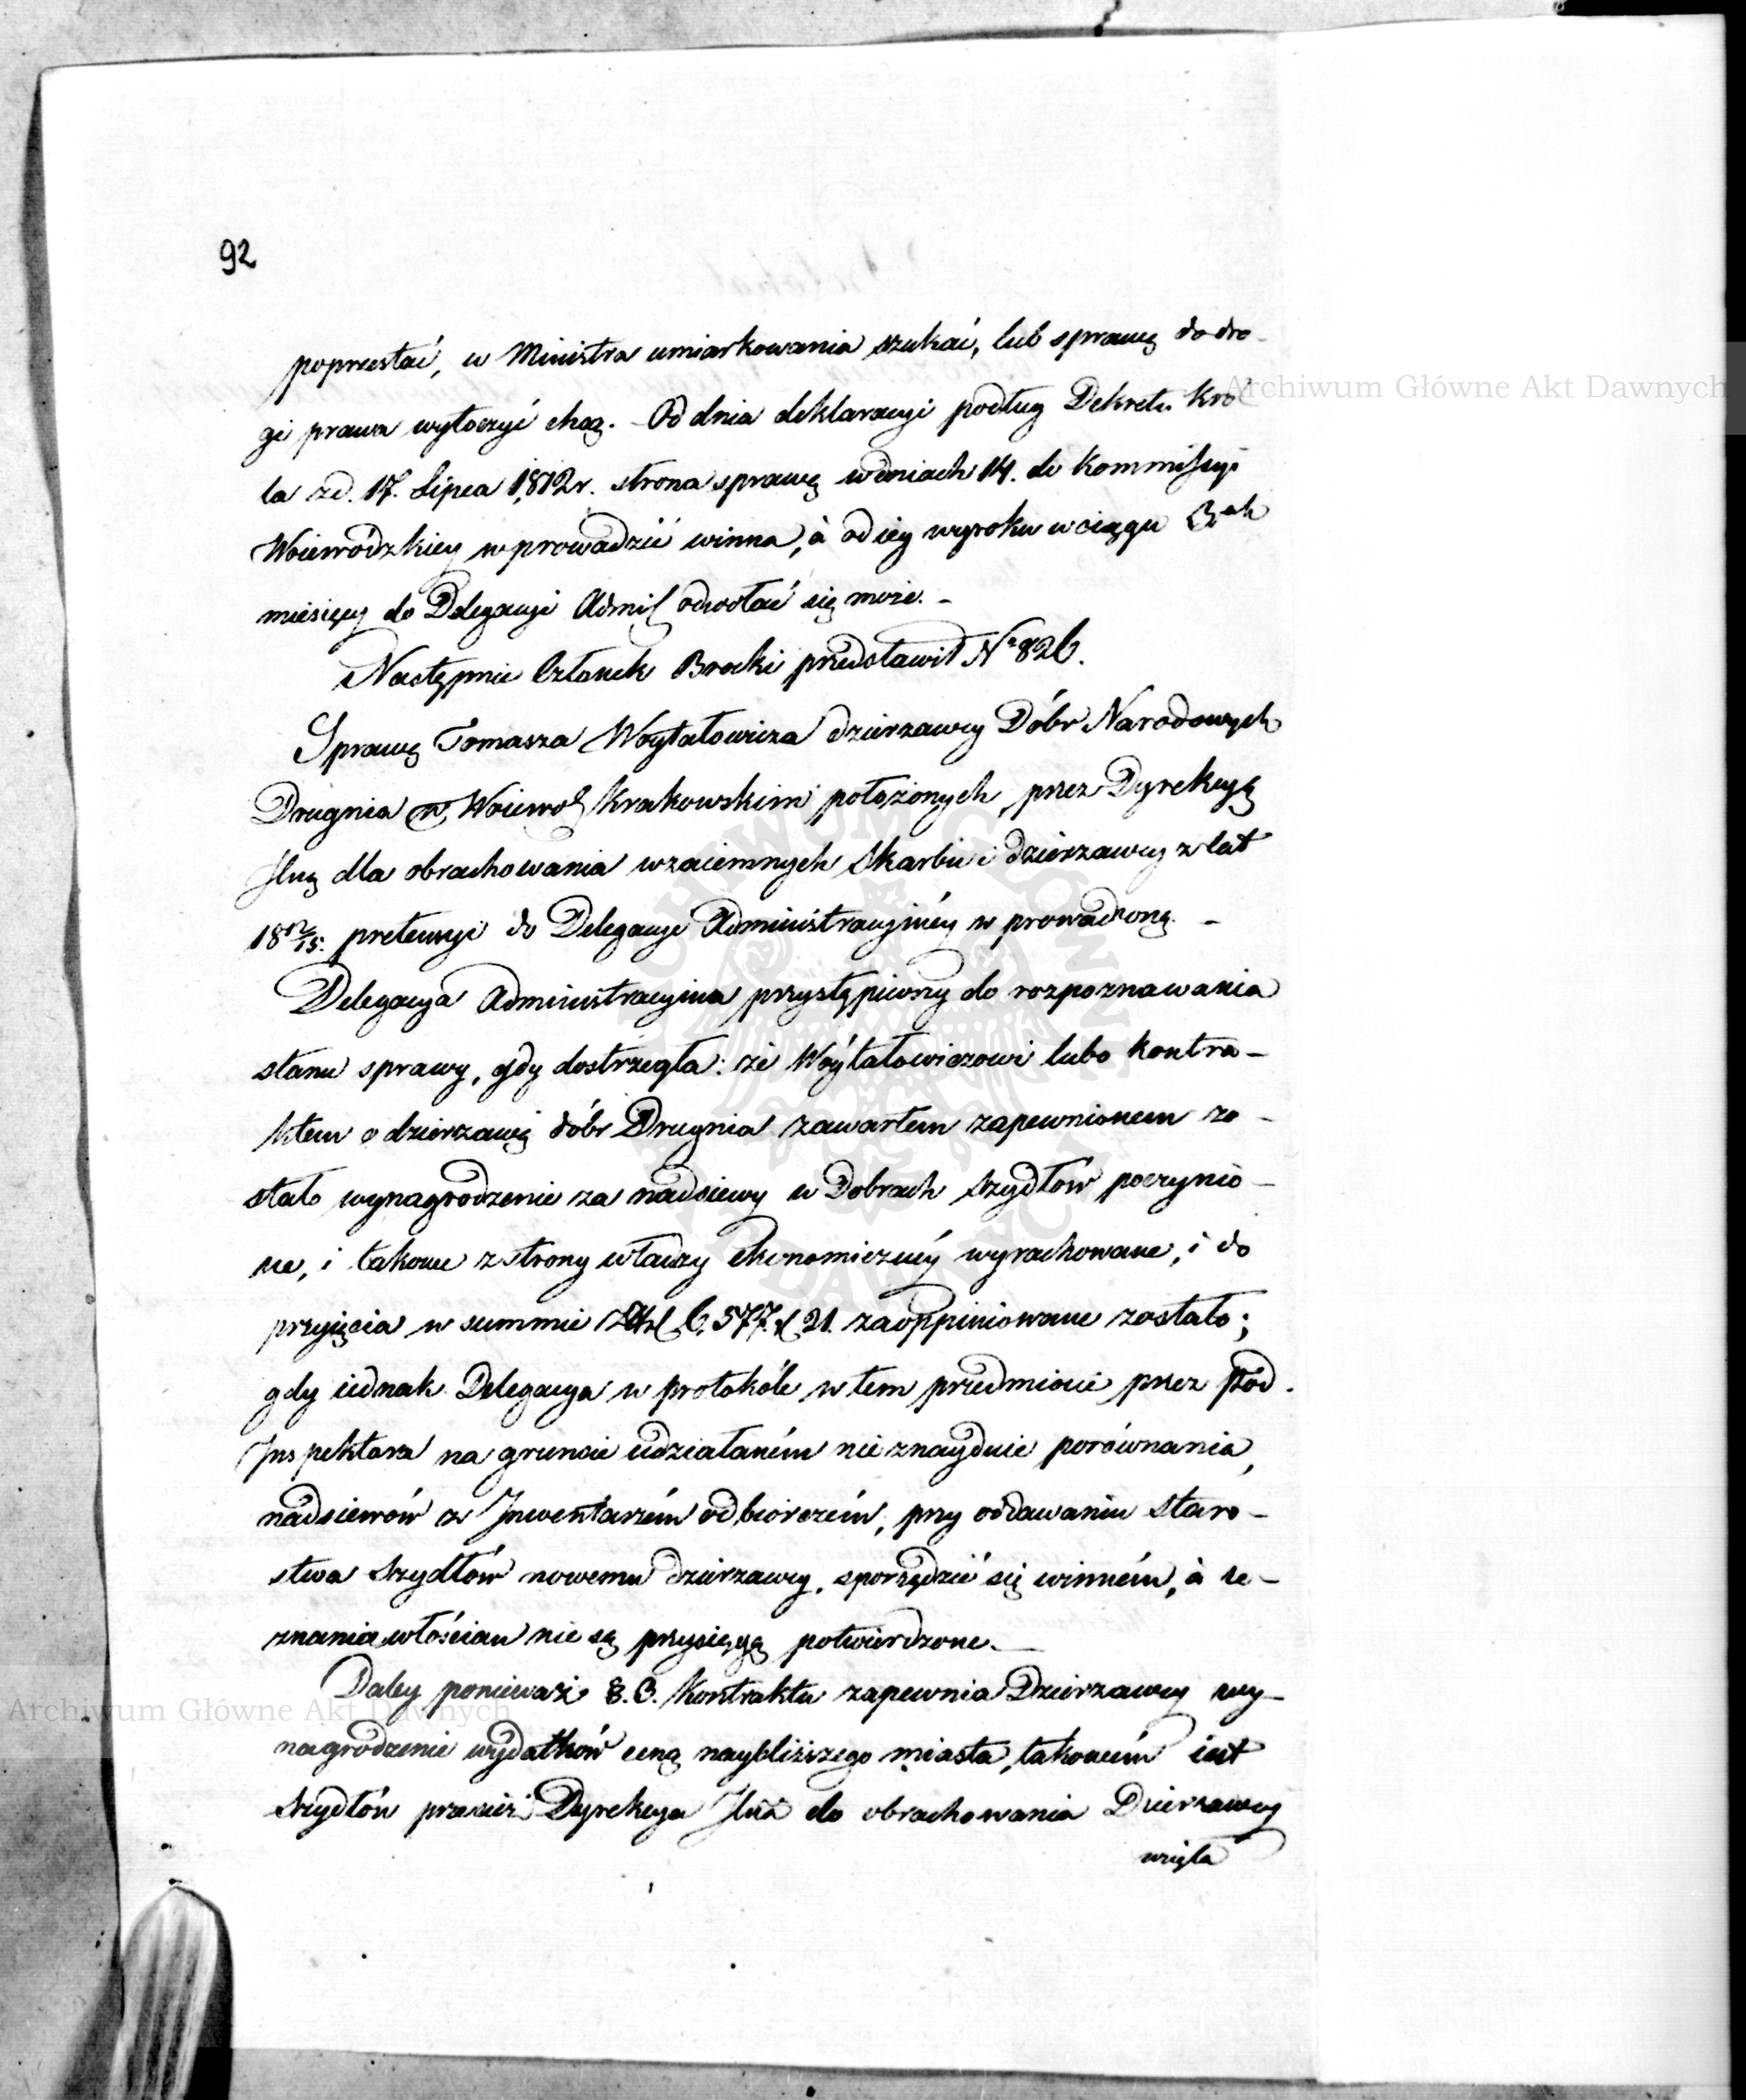 92
poprzestać, u Ministra umiarkowania szukać, lub sprawę do dro-
gi prawa wytoczyć chcą. - Od dnia deklaracyi podług Dekretu Kró
la z d. 17. Lipca 1812 r. strona sprawę w dniach 14. do Kommissyi
Woiewódzkiey wprowadzić winna, à od iey wyroku w ciągu 3ech
miesięcy do Delegacyi Admiś odwołać się może. -
Następnie Członek Brocki przedstawił Nº 826.
Sprawę Tomasza Woytałowicza dzierzawcy Dóbr Narodowych
Drugnia w Woiewod Krakowskim położonych, przez Dyrekcyą
Jlną dla obrachowania wzaiemnych Skarbu i dzierzawcy z lat
18 12/15. pretensyi do Delegacyi Administracyinéy wprowadzoną. -
Delegacya Administracyina przystąpiwszy do rozpoznawania
stanu sprawy, gdy dostrzegła: że Wóytałowiczowi lubo kontra-
ktem o dzierzawę dóbr Drugnia zawartem zapewnionem zo-
stało wynagrodzenie za nadsiewy w Dobrach Szydłów poczynio-
ne, i takowe z strony władzy ekonomicznéy wyrachowane, i do
przyięcia w summie 6,577. 21. zaoppiniowane zostało;
gdy iednak Delegacya w protokóle w tem przedmiocie przez Pod-
Inspektora na gruncie udziałaném nie znayduie porównania,
nadsiewów z Inwentarzém odbiorczém, przy oddawaniu Staro-
stwa Szydłów nowemu dzierzawcy, sporządzić się winném, à ze-
znania włościan nie są przysięgą potwierdzone. -
Daley ponieważ §. 6. Kontraktu zapewnia Dzierzawcy wy-
nagrodzenie wydatków ceną naybliższego miasta, takowém iest
Szydłów przecież Dyrekcya Jlna do obrachowania Dzierzawcy
wzięła
Archiwum Główne Akt Dawnych
Archiwum Główne Akt Dawnych